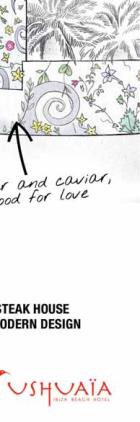 r and caviar,
ood for love
STEAK HOUSE
ODERN DESIGN
USHUAÏA
IBIZA BEACH HOTEL